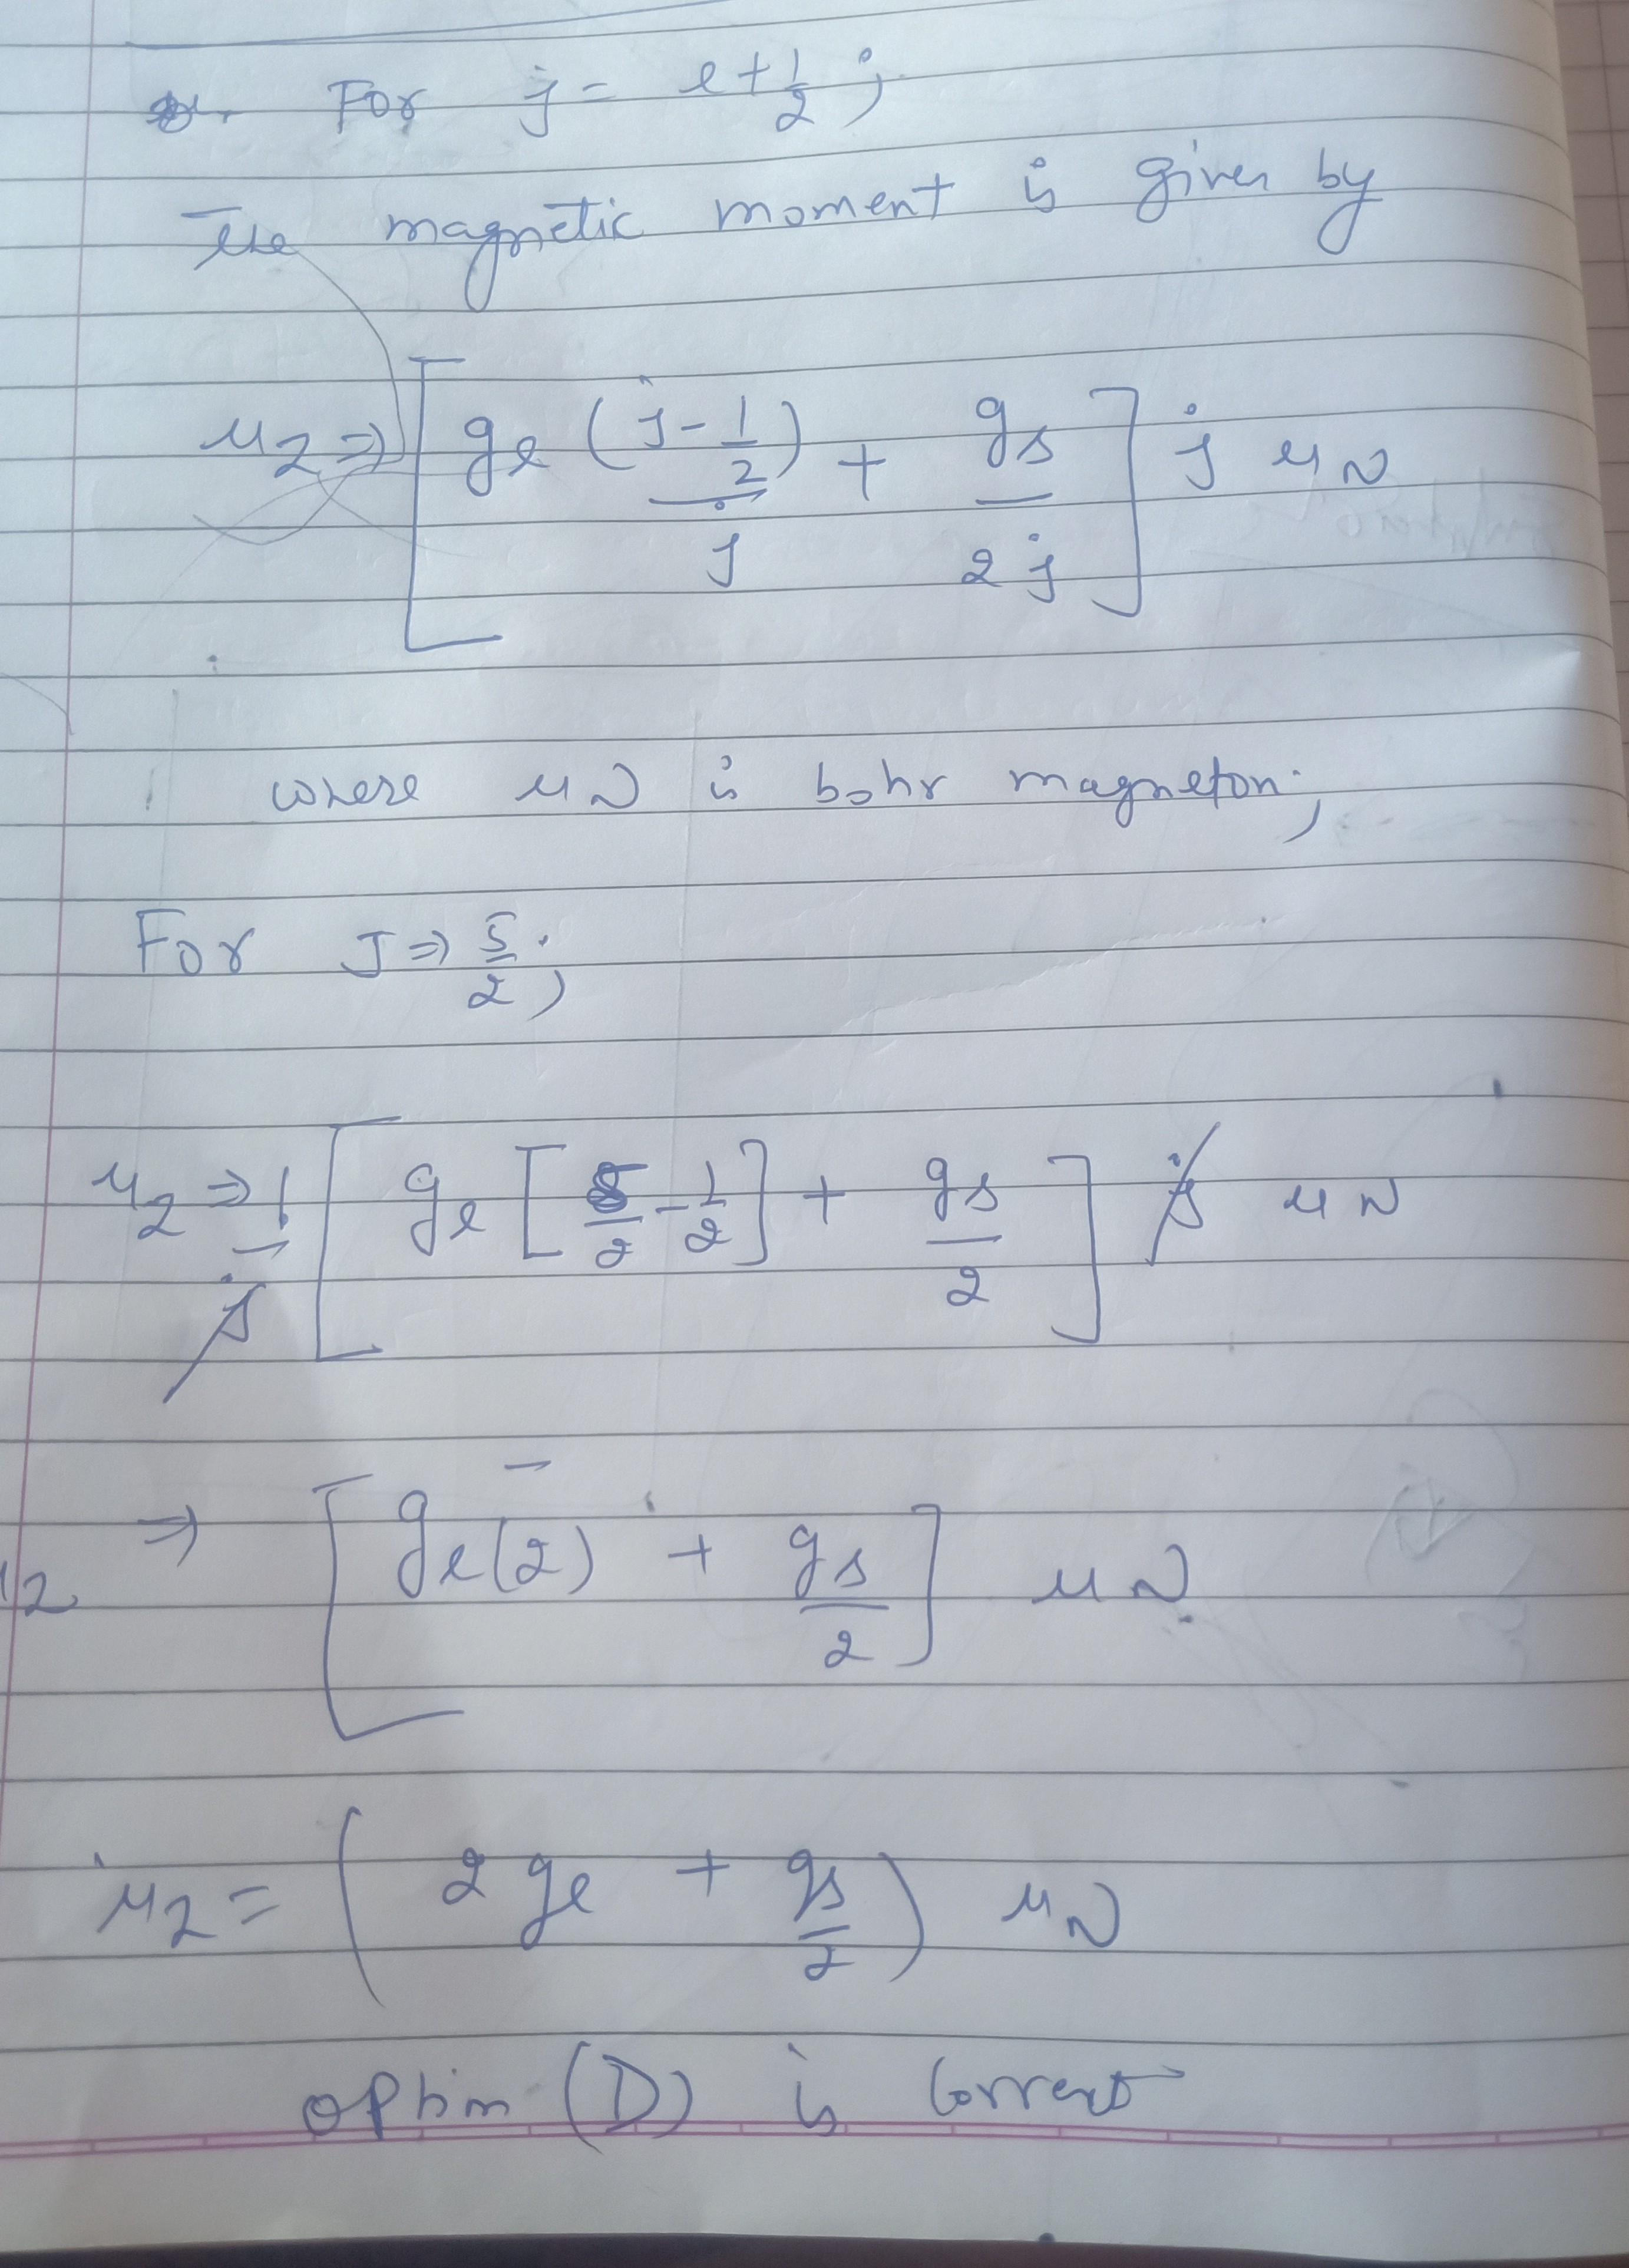 For j = l + 1/2 ;
The magnetic moment is given by
μz ⇒ [ gl (j - 1/2)/j + gs/2j ] j μN
where μN is bohr magneton;
For J ⇒ 5/2;
μz ⇒ 1/j [ gl [ 5/2 - 1/2 ] + gs/2 ] j μN
μz ⇒ [ gl(2) + gs/2 ] μN
μz = ( 2 gl + gs/2 ) μN
option (D) is correct